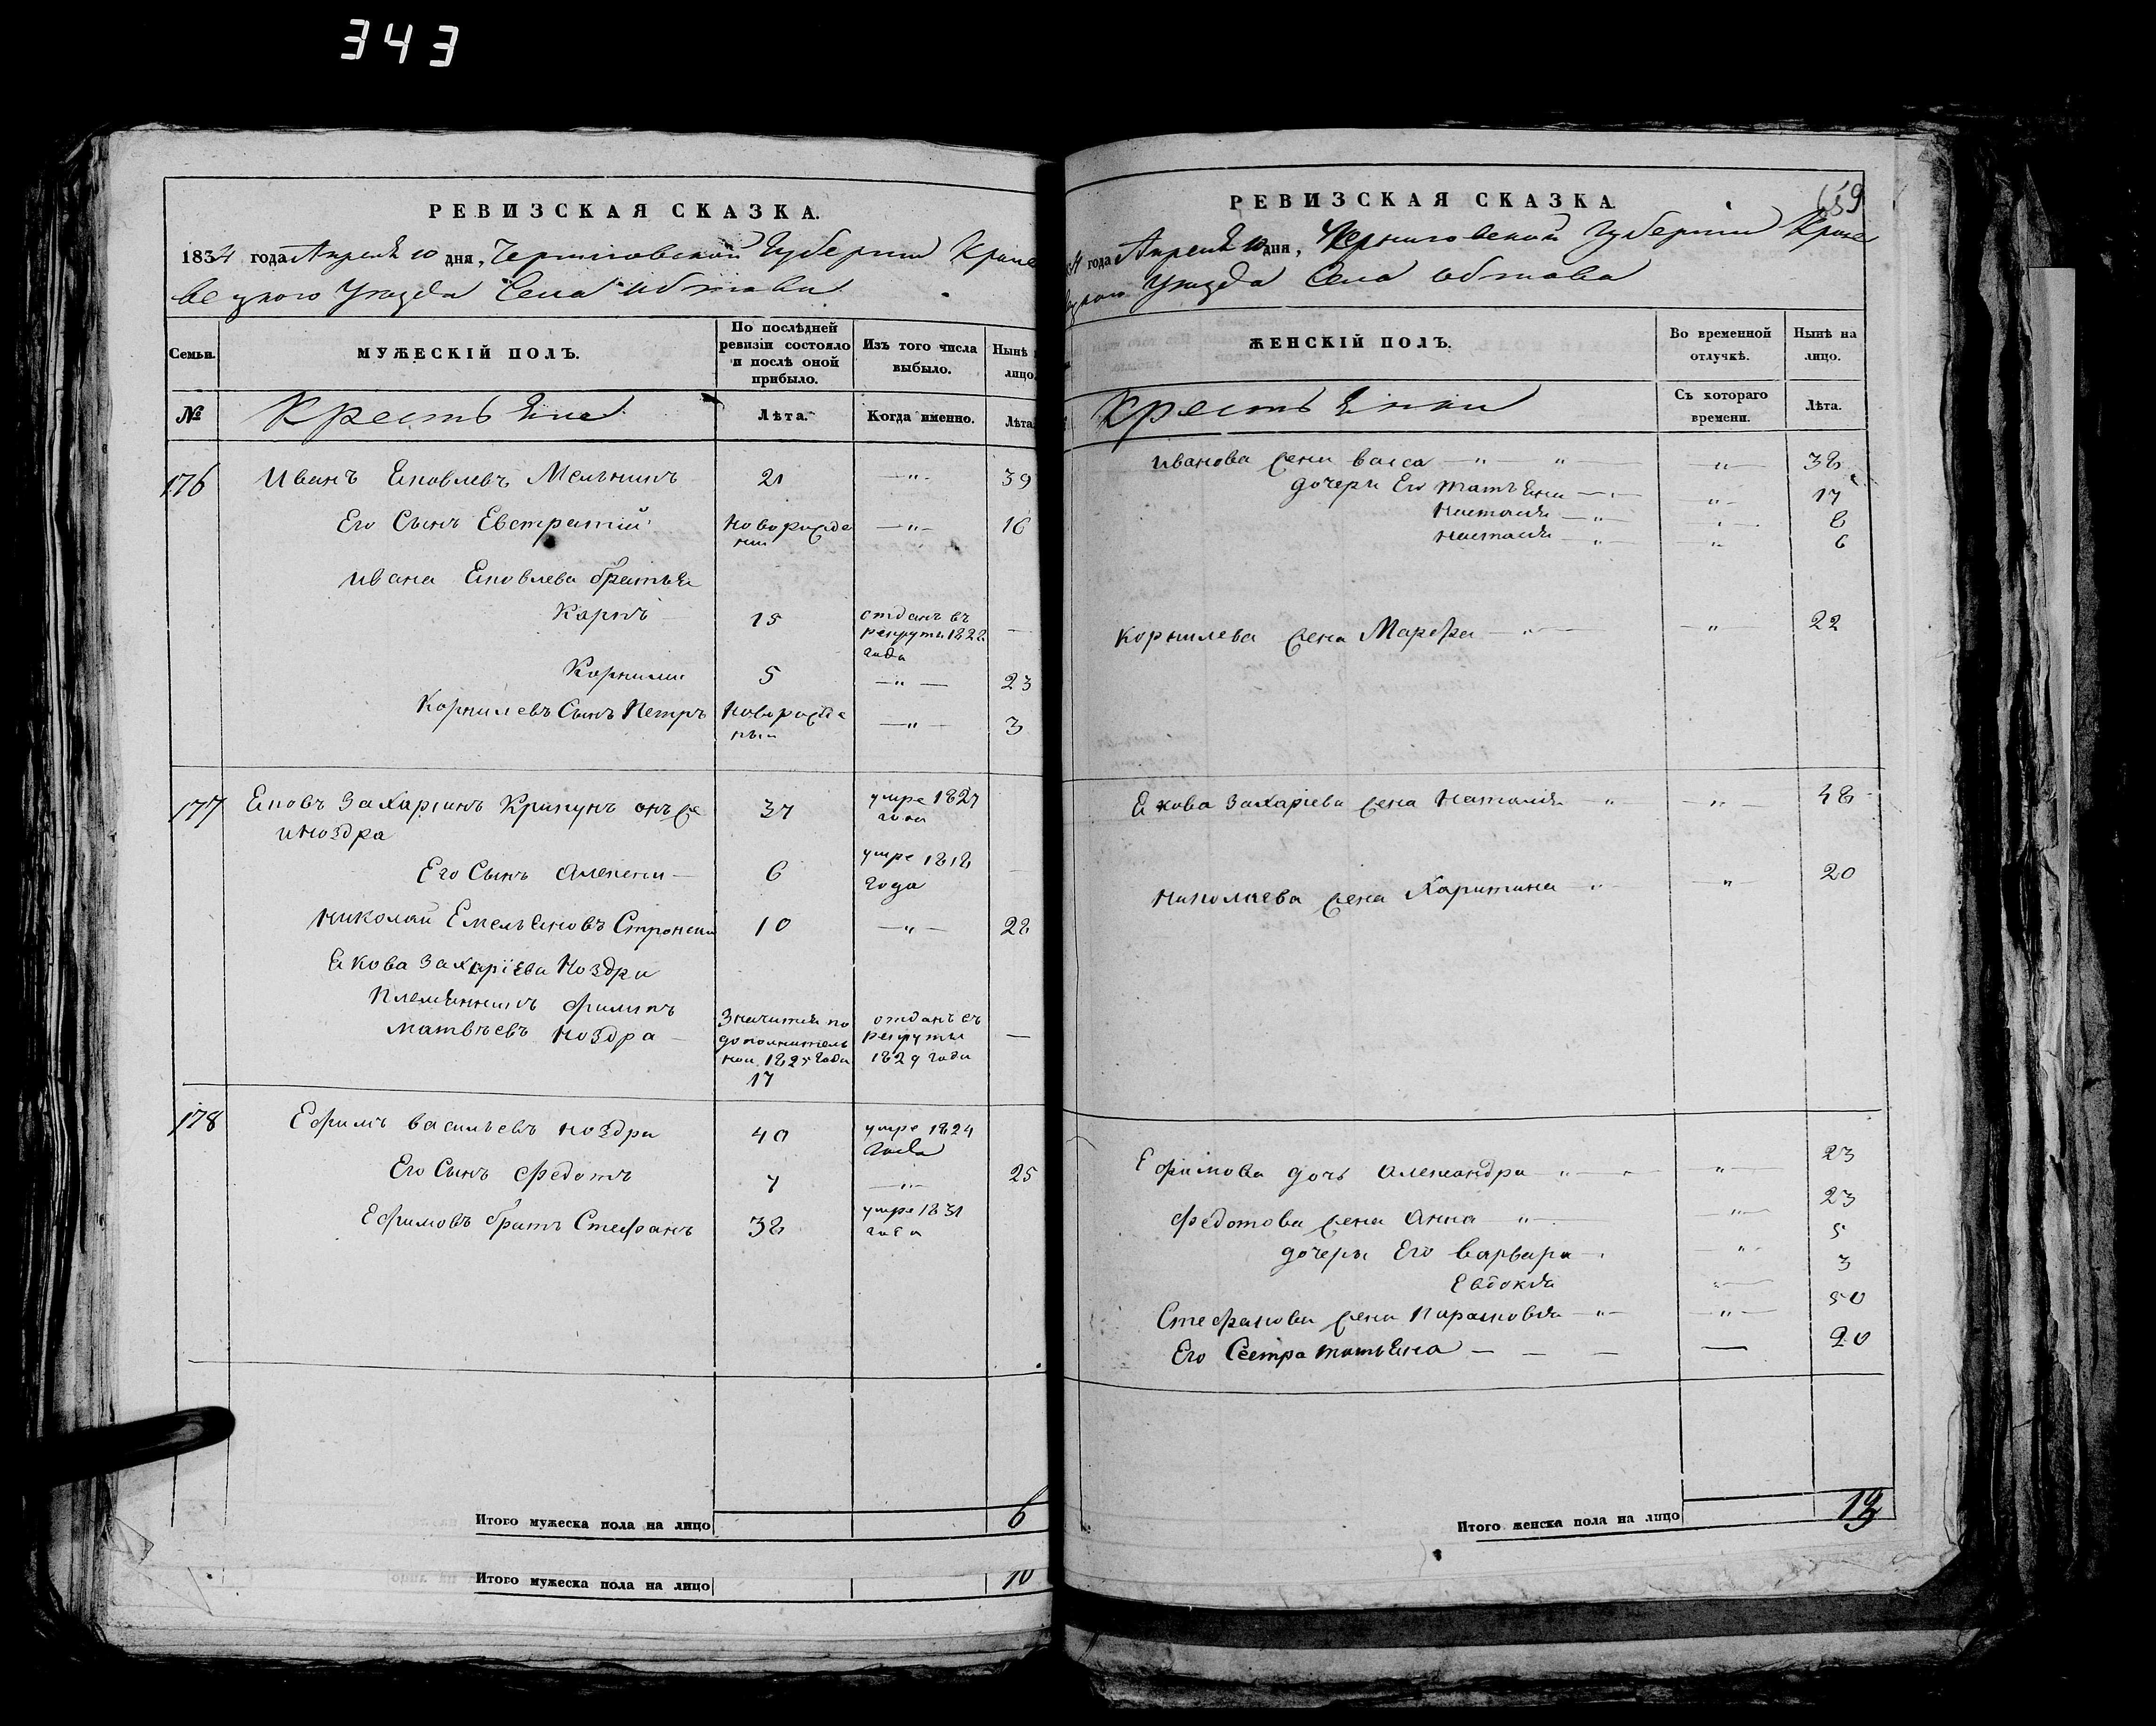 343
РЕВИЗСКАЯ СКАЗКА.
1834 года Апреля 10 дня, Черниговской Губернии Кроле
вецкого Уезда Села Обтова
Семьи. МУЖЕСКІЙ ПОЛЪ. По послѣдней ревизіи состояло и послѣ оной прибыло. Изъ того числа выбыло. Нынѣ лицо.
№ Крестьяне Лѣта. Когда именно. Лѣта.
176 Иванъ Яковлевъ Мельникъ 21 —"— 39
Его Сынъ Евстратій Новорожде ний —"— 16
Ивана Яковлева братья
Карпъ 15 отданъ въ рекруты 1828 года —
Корнили 5 —"— 23
Корнилевъ Сынъ Петръ Новорожде ный —"— 3
177 Яковъ Захаринъ Крикунъ онъ же 37 умре 1827 года
и Ноздра
Его Сынъ Алексей — 6 умре 1818 года —
Николай Емельяновъ Стронский 10 —"— 28
Якова Захаріева Ноздри
Племянникъ Филипъ
Матвѣевъ Ноздра — Значится по дополнитель ной 1825 года 17 отданъ въ рекруты 1829 года —
178 Ефимъ Васильевъ Ноздра 40 умре 1824 года
Его Сынъ Федотъ 7 —"— 25
Ефимовъ братъ Стефанъ 38 умре 1831 года
Итого мужеска пола на лицо 6
Итого мужеска пола на лицо 10
659
РЕВИЗСКАЯ СКАЗКА
4 года Апреля 10 дня, Черниговской Губерніи Кроле
вецкого Уезда Села Обтова
ЖЕНСКІЙ ПОЛЪ. Во временной отлучкѣ. Нынѣ на лицо.
Крестьянки Съ котораго времени. Лѣта.
Иванова жена Васса —"— " —"— 38
дочери Его Татьяна —"— —"— 17
Наталья —"— —"— 8
Наталья —"— —"— 6
Корнилева жена Марфа —"— —"— 22
Якова Захаріева жена Наталія " —"— 48
Николаева жена Харитина " —"— 20
Ефимова дочь Александра " — " — —"— 23
Федотова жена Анна —"— —"— 23
дочери Его Варвара —"— 5
Евдокія —"— 3
Стефанова жена Парасковія —"— —"— 50
Его Сестра Татьяна — — — — 20
Итого женска пола на лицо 13